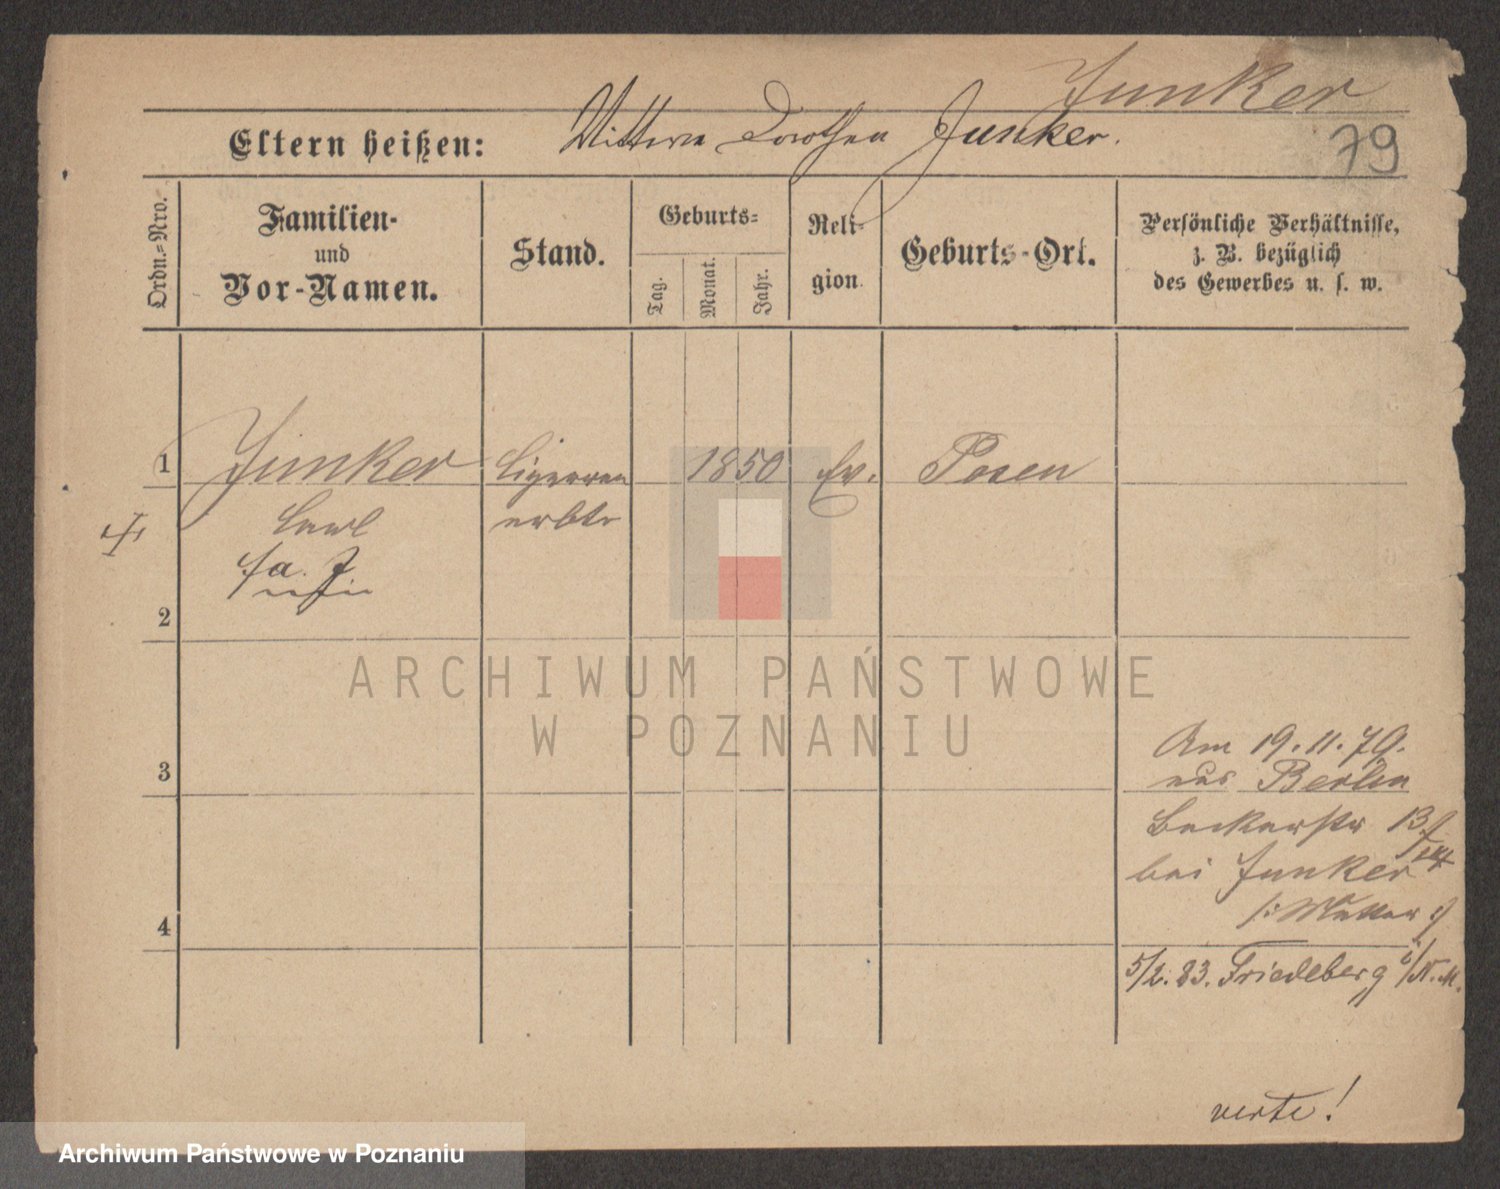 Junker
79
Eltern heißen: Wittwe Dorothea Junker.
Ordn.-Nro.
Familien-
und
Vor-Namen.
Stand.
Geburts-
Tag.
Monat.
Jahr.
Reli-
gion.
Geburts-Ort.
Persönliche Verhältnisse,
z. B. bezüglich
des Gewerbes u. s. w.
1 Junker Cigarren 1850 Ev. Posen
Carl arbtr
2
3
4
Am 19.11.79.
aus Berlin
Beckerstr 13
bei Junker
/: Mutter :/
5/2.83. Friedeberg i/N.M.
verte!
ARCHIWUM PAŃSTWOWE
W POZNANIU
Archiwum Państwowe w Poznaniu